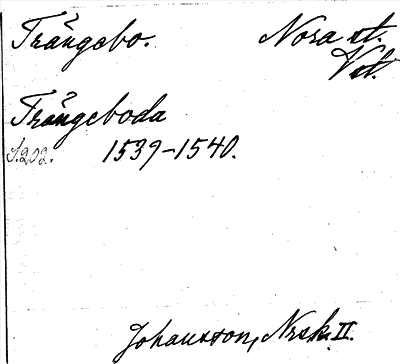 Trångebo. Nora st.
Vstl.
Trångeboda
S.202. 1539-1540.
Johansson, Nrsk. II.